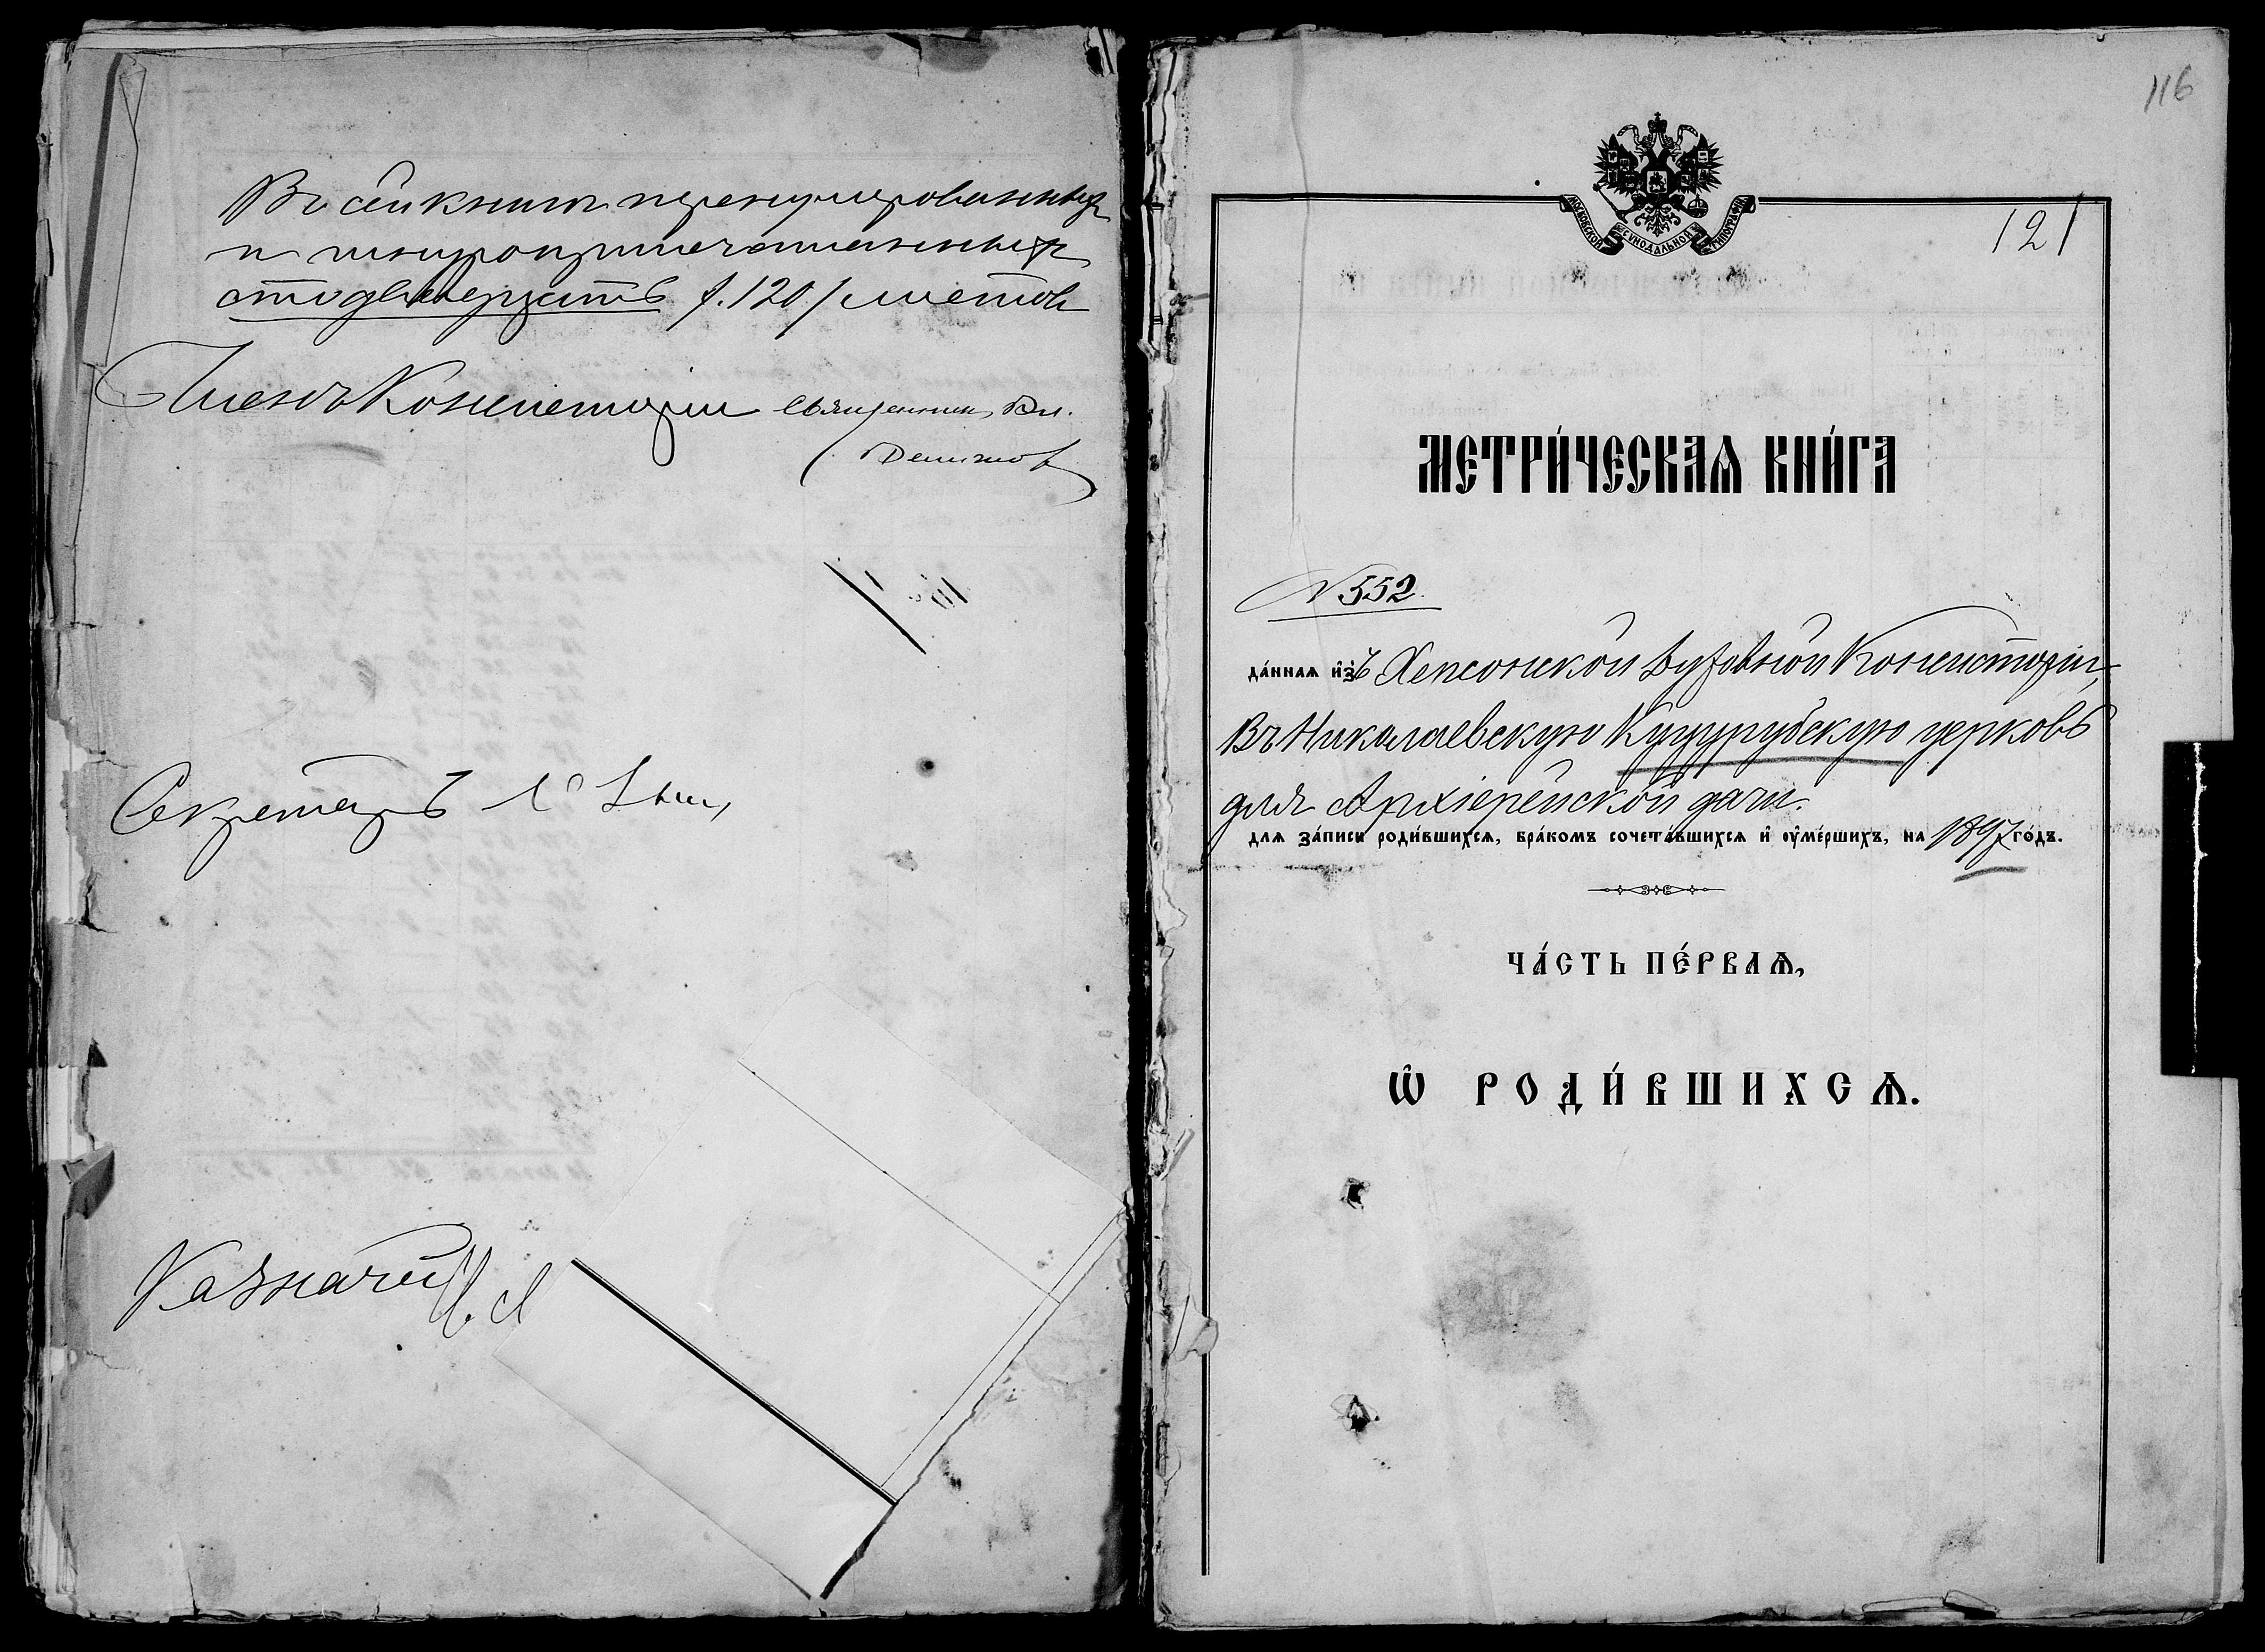 Въ сей книгѣ перенумерованныхъ
и шнуроприпечатанныхъ
сто двадцать /120/ листовъ
Членъ Консисторіи Священникъ Вл.
Секретарь
Казначей
116
МОСКОВСКОЙ СѴНОДАЛЬНОЙ ТИПОГРАФІИ
121
МЕТРИ́ЧЕСКАѦ КНИ́ГА
№ 552.
да́ннаѧ и҆зъ Херсонской Духовной Консисторіи,
Въ Николаевскую Куцурубскую церковь
для Архіерейской дачи.
длѧ за́писи роди́вшихсѧ, бра́комъ сочета́вшихсѧ и҆ ѹ҆ме́ршихъ, на 1897 го́дъ.
ЧА́СТЬ ПЕ́РВАѦ,
Ѡ҆ РОДИ́ВШИХСѦ.